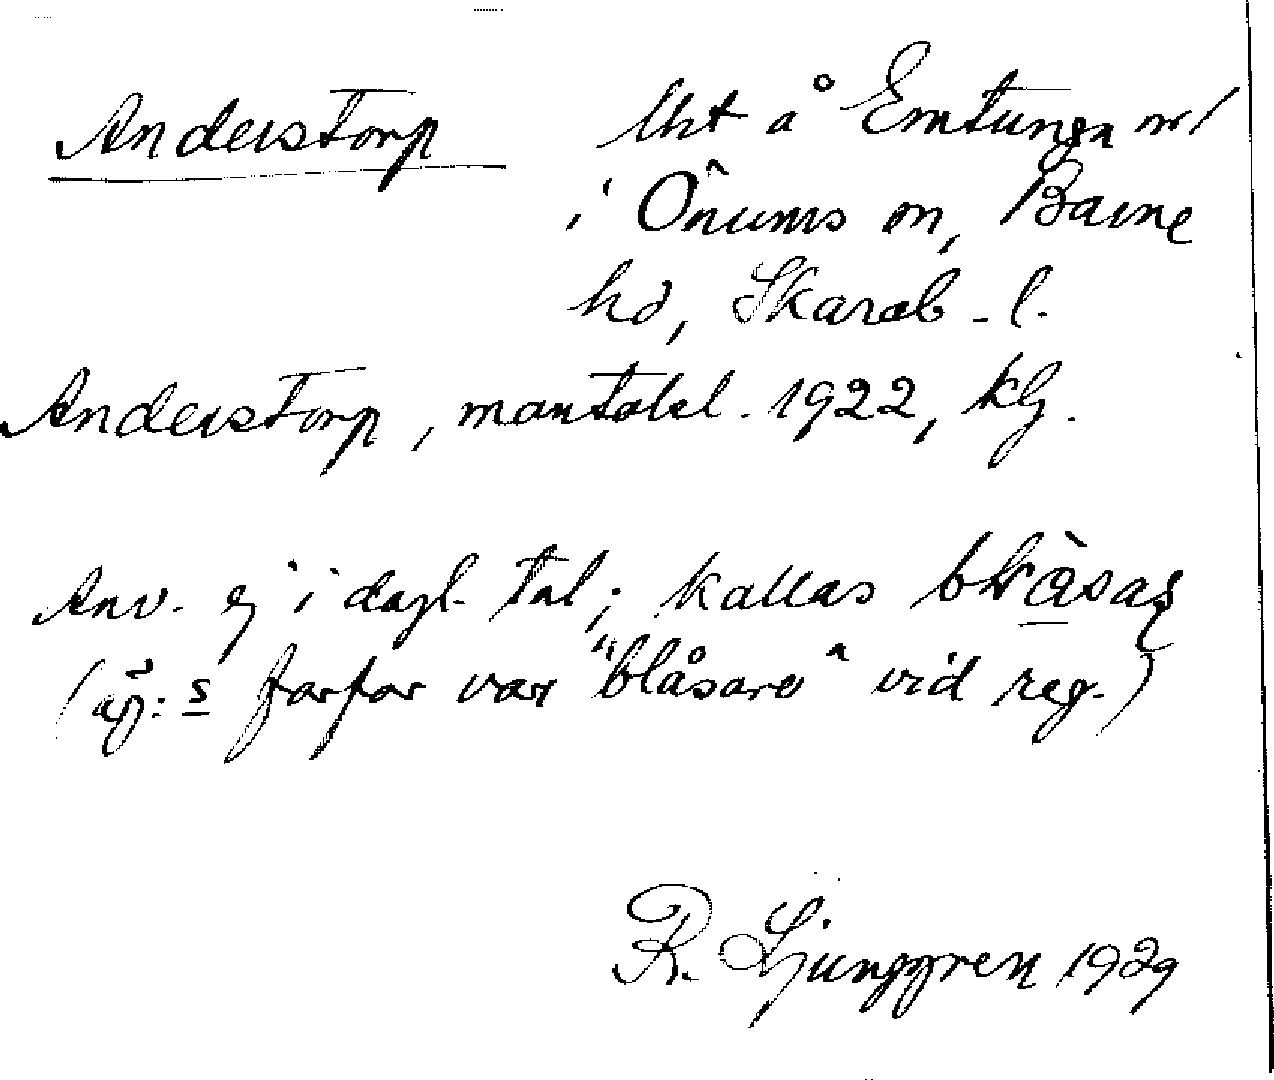 Anderstorp lht å Emtunga nr 1
i Önums sn, Barne
hd, Skarab. l.
Anderstorp, mantalsl. 1922, klj.
Anv. ej i dagl. tal; kallas
(äg:s farfar var "blåsare" vid reg.)
R. Ljunggren 1929